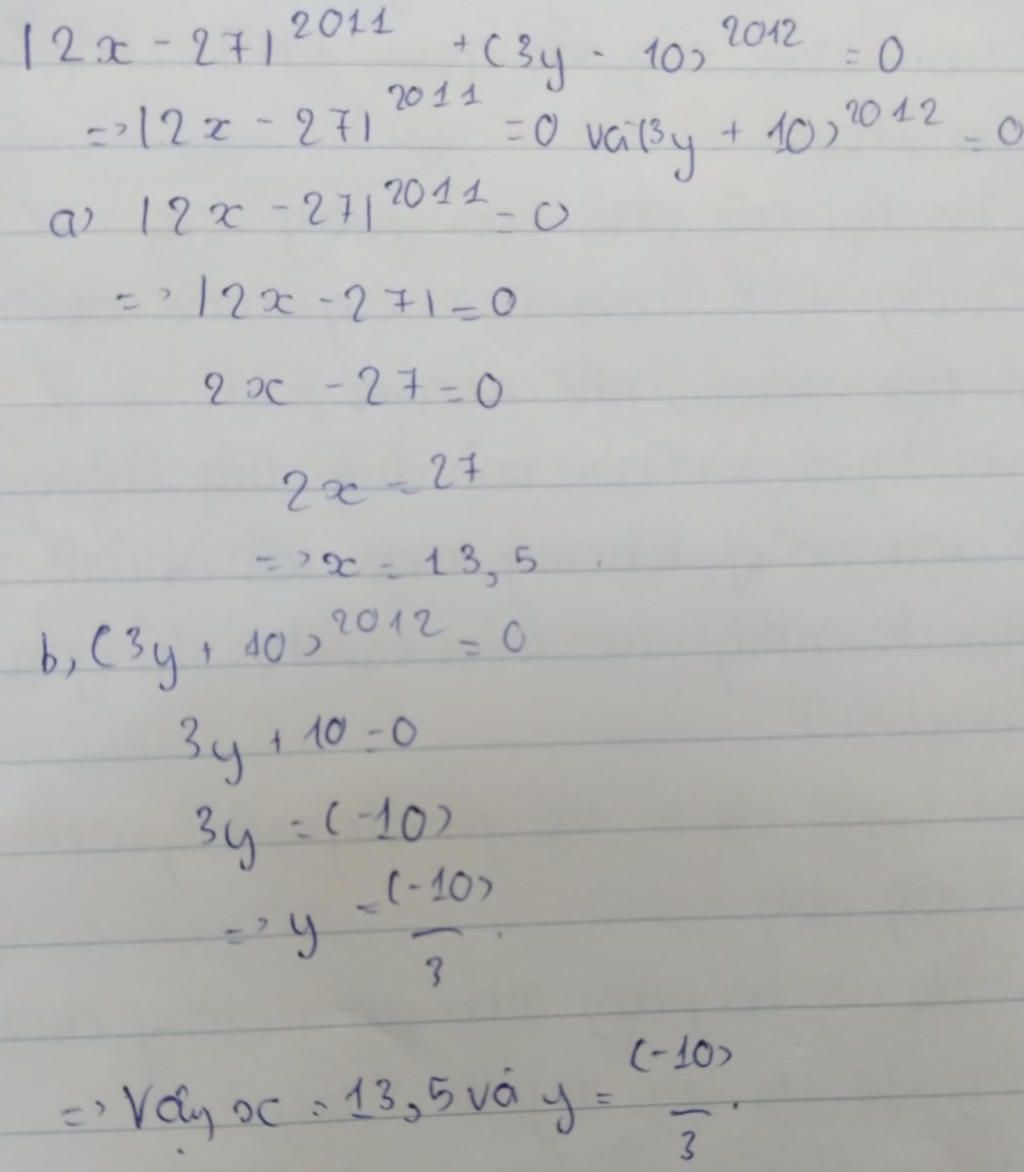 |2x - 27|^2011 + (3y - 10)^2012 = 0
=> |2x - 27|^2011 = 0 và (3y + 10)^2012 = 0
a) |2x - 27|^2011 = 0
=> |2x - 27| = 0
2x - 27 = 0
2x = 27
=> x = 13,5
b, (3y + 10)^2012 = 0
3y + 10 = 0
3y = (-10)
=> y = (-10)/3.
=> Vậy x = 13,5 và y = (-10)/3.